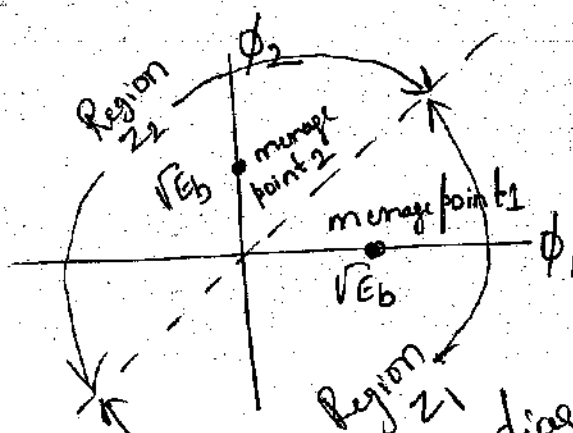 ϕ2
Region
Z2
message
point 2
√Eb
message point 1
ϕ1
√Eb
Region
Z1